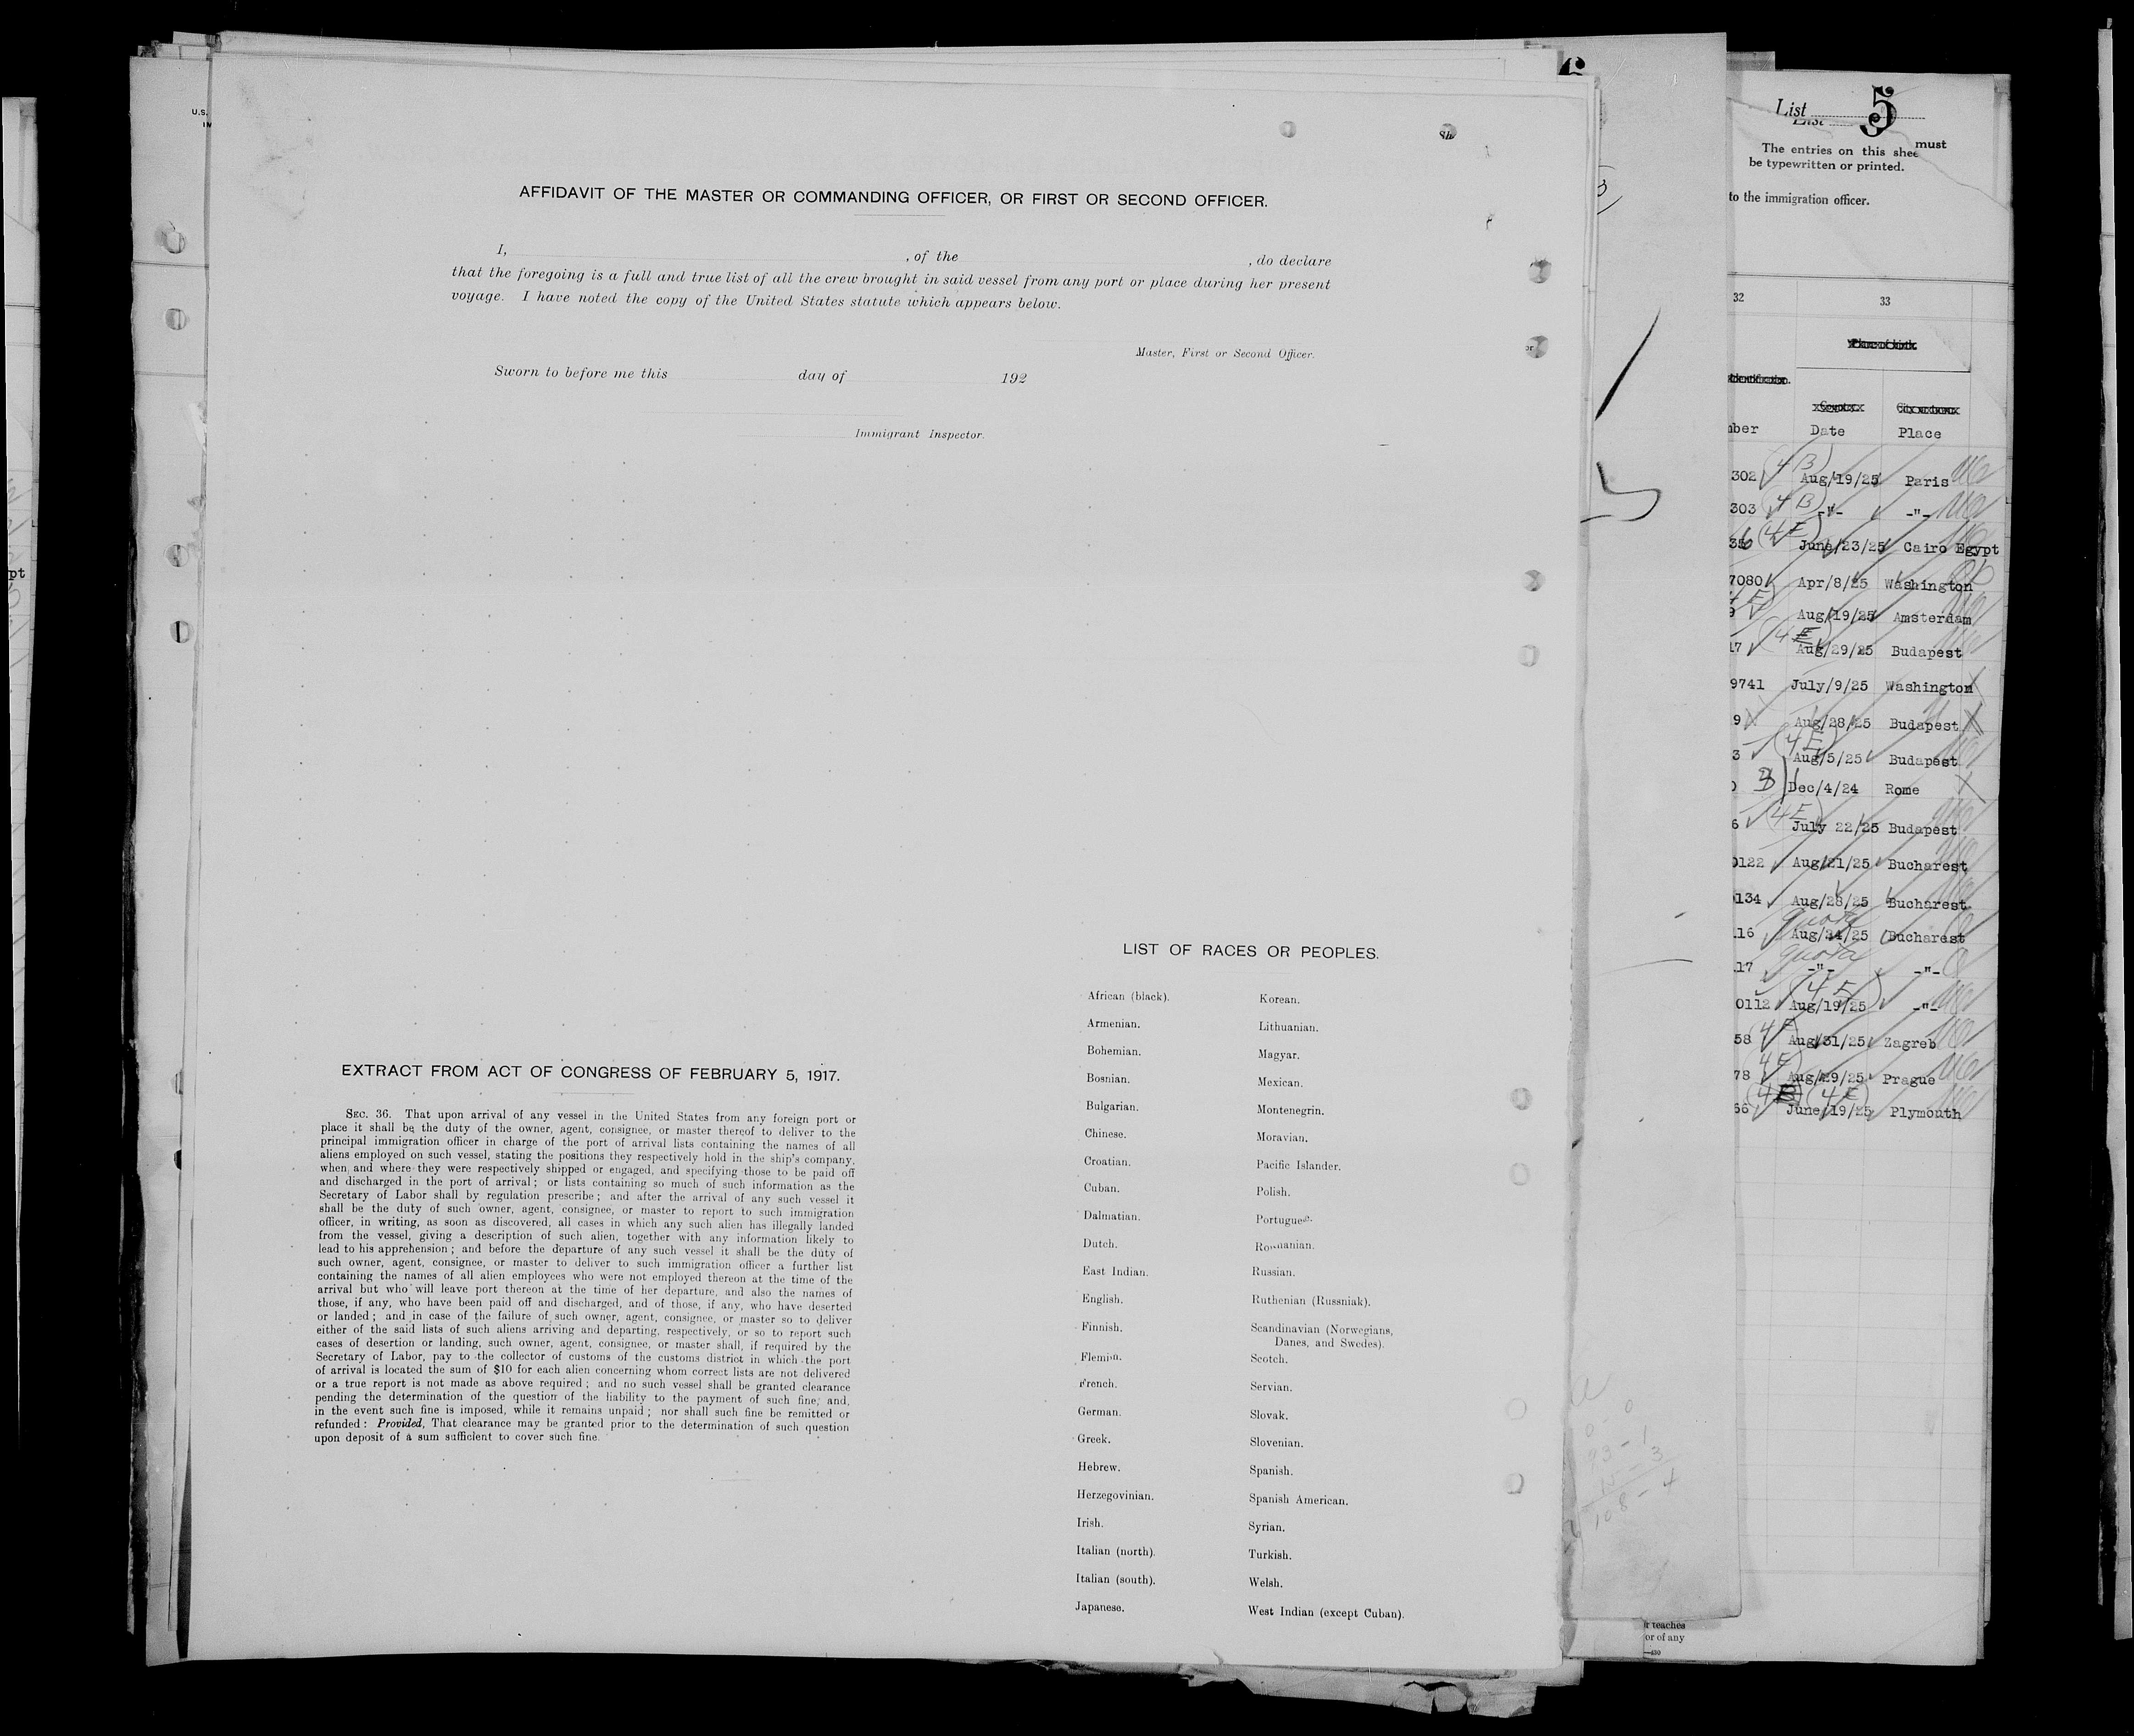 AFFIDAVIT OF THE MASTER OR COMMANDING OFFICER, OR FIRST OR SECOND OFFICER.
I, , of the , do declare
that the foregoing is a full and true list of all the crew brought in said vessel from any port or place during her present
voyage. I have noted the copy of the United States statute which appears below.
Master, First or Second Officer.
Sworn to before me this day of 192
Immigrant Inspector.
EXTRACT FROM ACT OF CONGRESS OF FEBRUARY 5, 1917.
SEC. 36. That upon arrival of any vessel in the United States from any foreign port or
place it shall be the duty of the owner, agent, consignee, or master thereof to deliver to the
principal immigration officer in charge of the port of arrival lists containing the names of all
aliens employed on such vessel, stating the positions they respectively hold in the ship's company,
when and where they were respectively shipped or engaged, and specifying those to be paid off
and discharged in the port of arrival; or lists containing so much of such information as the
Secretary of Labor shall by regulation prescribe; and after the arrival of any such vessel it
shall be the duty of such owner, agent, consignee, or master to report to such immigration
officer, in writing, as soon as discovered, all cases in which any such alien has illegally landed
from the vessel, giving a description of such alien, together with any information likely to
lead to his apprehension; and before the departure of any such vessel it shall be the duty of
such owner, agent, consignee, or master to deliver to such immigration officer a further list
containing the names of all alien employees who were not employed thereon at the time of the
arrival but who will leave port thereon at the time of her departure, and also the names of
those, if any, who have been paid off and discharged, and of those, if any, who have deserted
or landed; and in case of the failure of such owner, agent, consignee, or master so to deliver
either of the said lists of such aliens arriving and departing, respectively, or so to report such
cases of desertion or landing, such owner, agent, consignee, or master shall, if required by the
Secretary of Labor, pay to the collector of customs of the customs district in which the port
of arrival is located the sum of $10 for each alien concerning whom correct lists are not delivered
or a true report is not made as above required; and no such vessel shall be granted clearance
pending the determination of the question of the liability to the payment of such fine, and,
in the event such fine is imposed, while it remains unpaid; nor shall such fine be remitted or
refunded: Provided, That clearance may be granted prior to the determination of such question
upon deposit of a sum sufficient to cover such fine.
LIST OF RACES OR PEOPLES.
African (black).
Armenian.
Bohemian.
Bosnian.
Bulgarian.
Chinese.
Croatian.
Cuban.
Dalmatian.
Dutch.
East Indian.
English.
Finnish.
Flemish.
French.
German.
Greek.
Hebrew.
Herzegovinian.
Irish.
Italian (north).
Italian (south).
Japanese.
Korean.
Lithuanian.
Magyar.
Mexican.
Montenegrin.
Moravian.
Pacific Islander.
Polish.
Portuguese.
Roumanian.
Russian.
Ruthenian (Russniak).
Scandinavian (Norwegians,
Danes, and Swedes).
Scotch.
Servian.
Slovak.
Slovenian.
Spanish.
Spanish American.
Syrian.
Turkish.
Welsh.
West Indian (except Cuban).
List 5
The entries on this sheet must
be typewritten or printed.
to the immigration officer.
32 33
Date Place
302 (4 B) Aug/19/25 Paris
303 (4 B) -"- -"-
356 (4 E) June/23/25 Cairo Egypt
7080 Apr/8/25 Washington
9 4 E) Aug/19/25 Amsterdam
17 (4 E) Aug/29/25 Budapest
9741 July/9/25 Washington
9 Aug/28/25 Budapest
3 (4 E) Aug/5/25 Budapest
Dec/4/24 Rome
6 (4E) July 22/25 Budapest
0122 Aug/21/25 Bucharest
0134 Aug/28/25 Bucharest
16 quota Aug/24/25 Bucharest
17 quota -"- -"-
0112 (4 E) Aug/19/25 -"-
58 4 E Aug/31/25 Zagreb
78 (4 E) Aug/29/25 Prague
66 (4 E) June/19/25 Plymouth
93 - 1
15 - 3
108 - 4
teaches
or of any